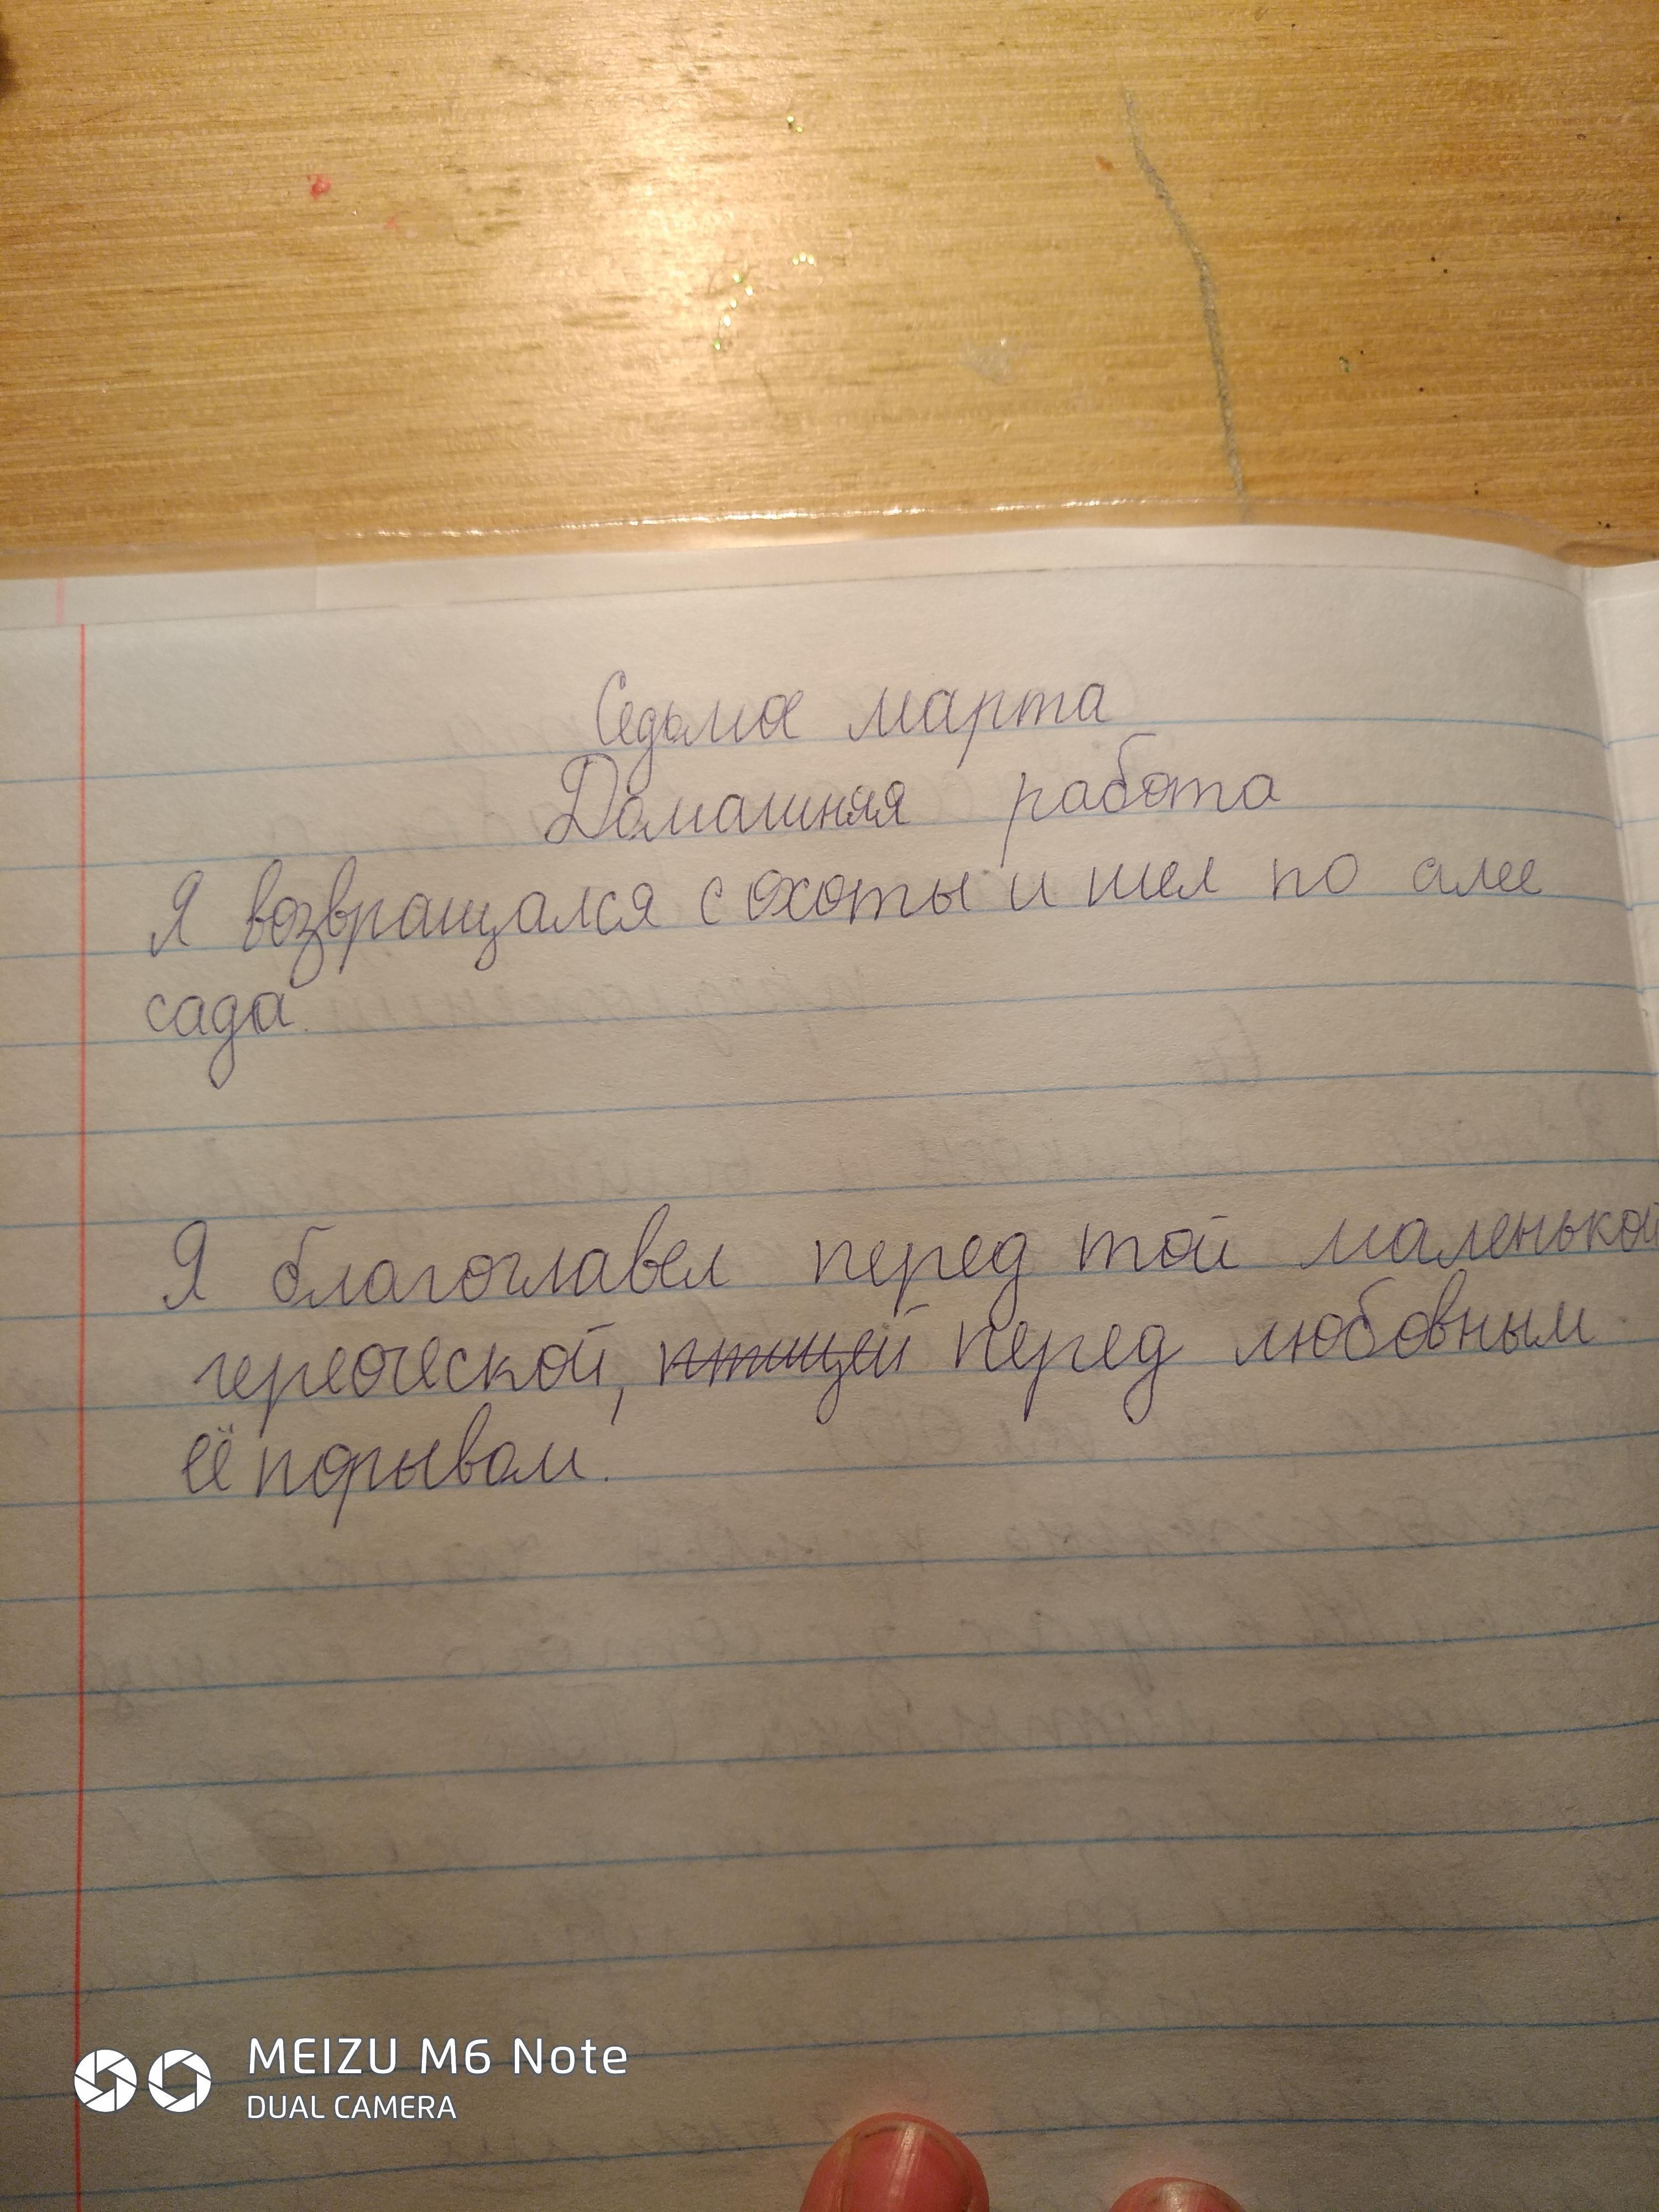 Седьмое марта
Домашняя работа
Я возвращался с охоты и шел по алее
сада.
Я благоглавел перед той маленькой
героческой, птицей перед любовным
её порывом.
MEIZU M6 Note
DUAL CAMERA